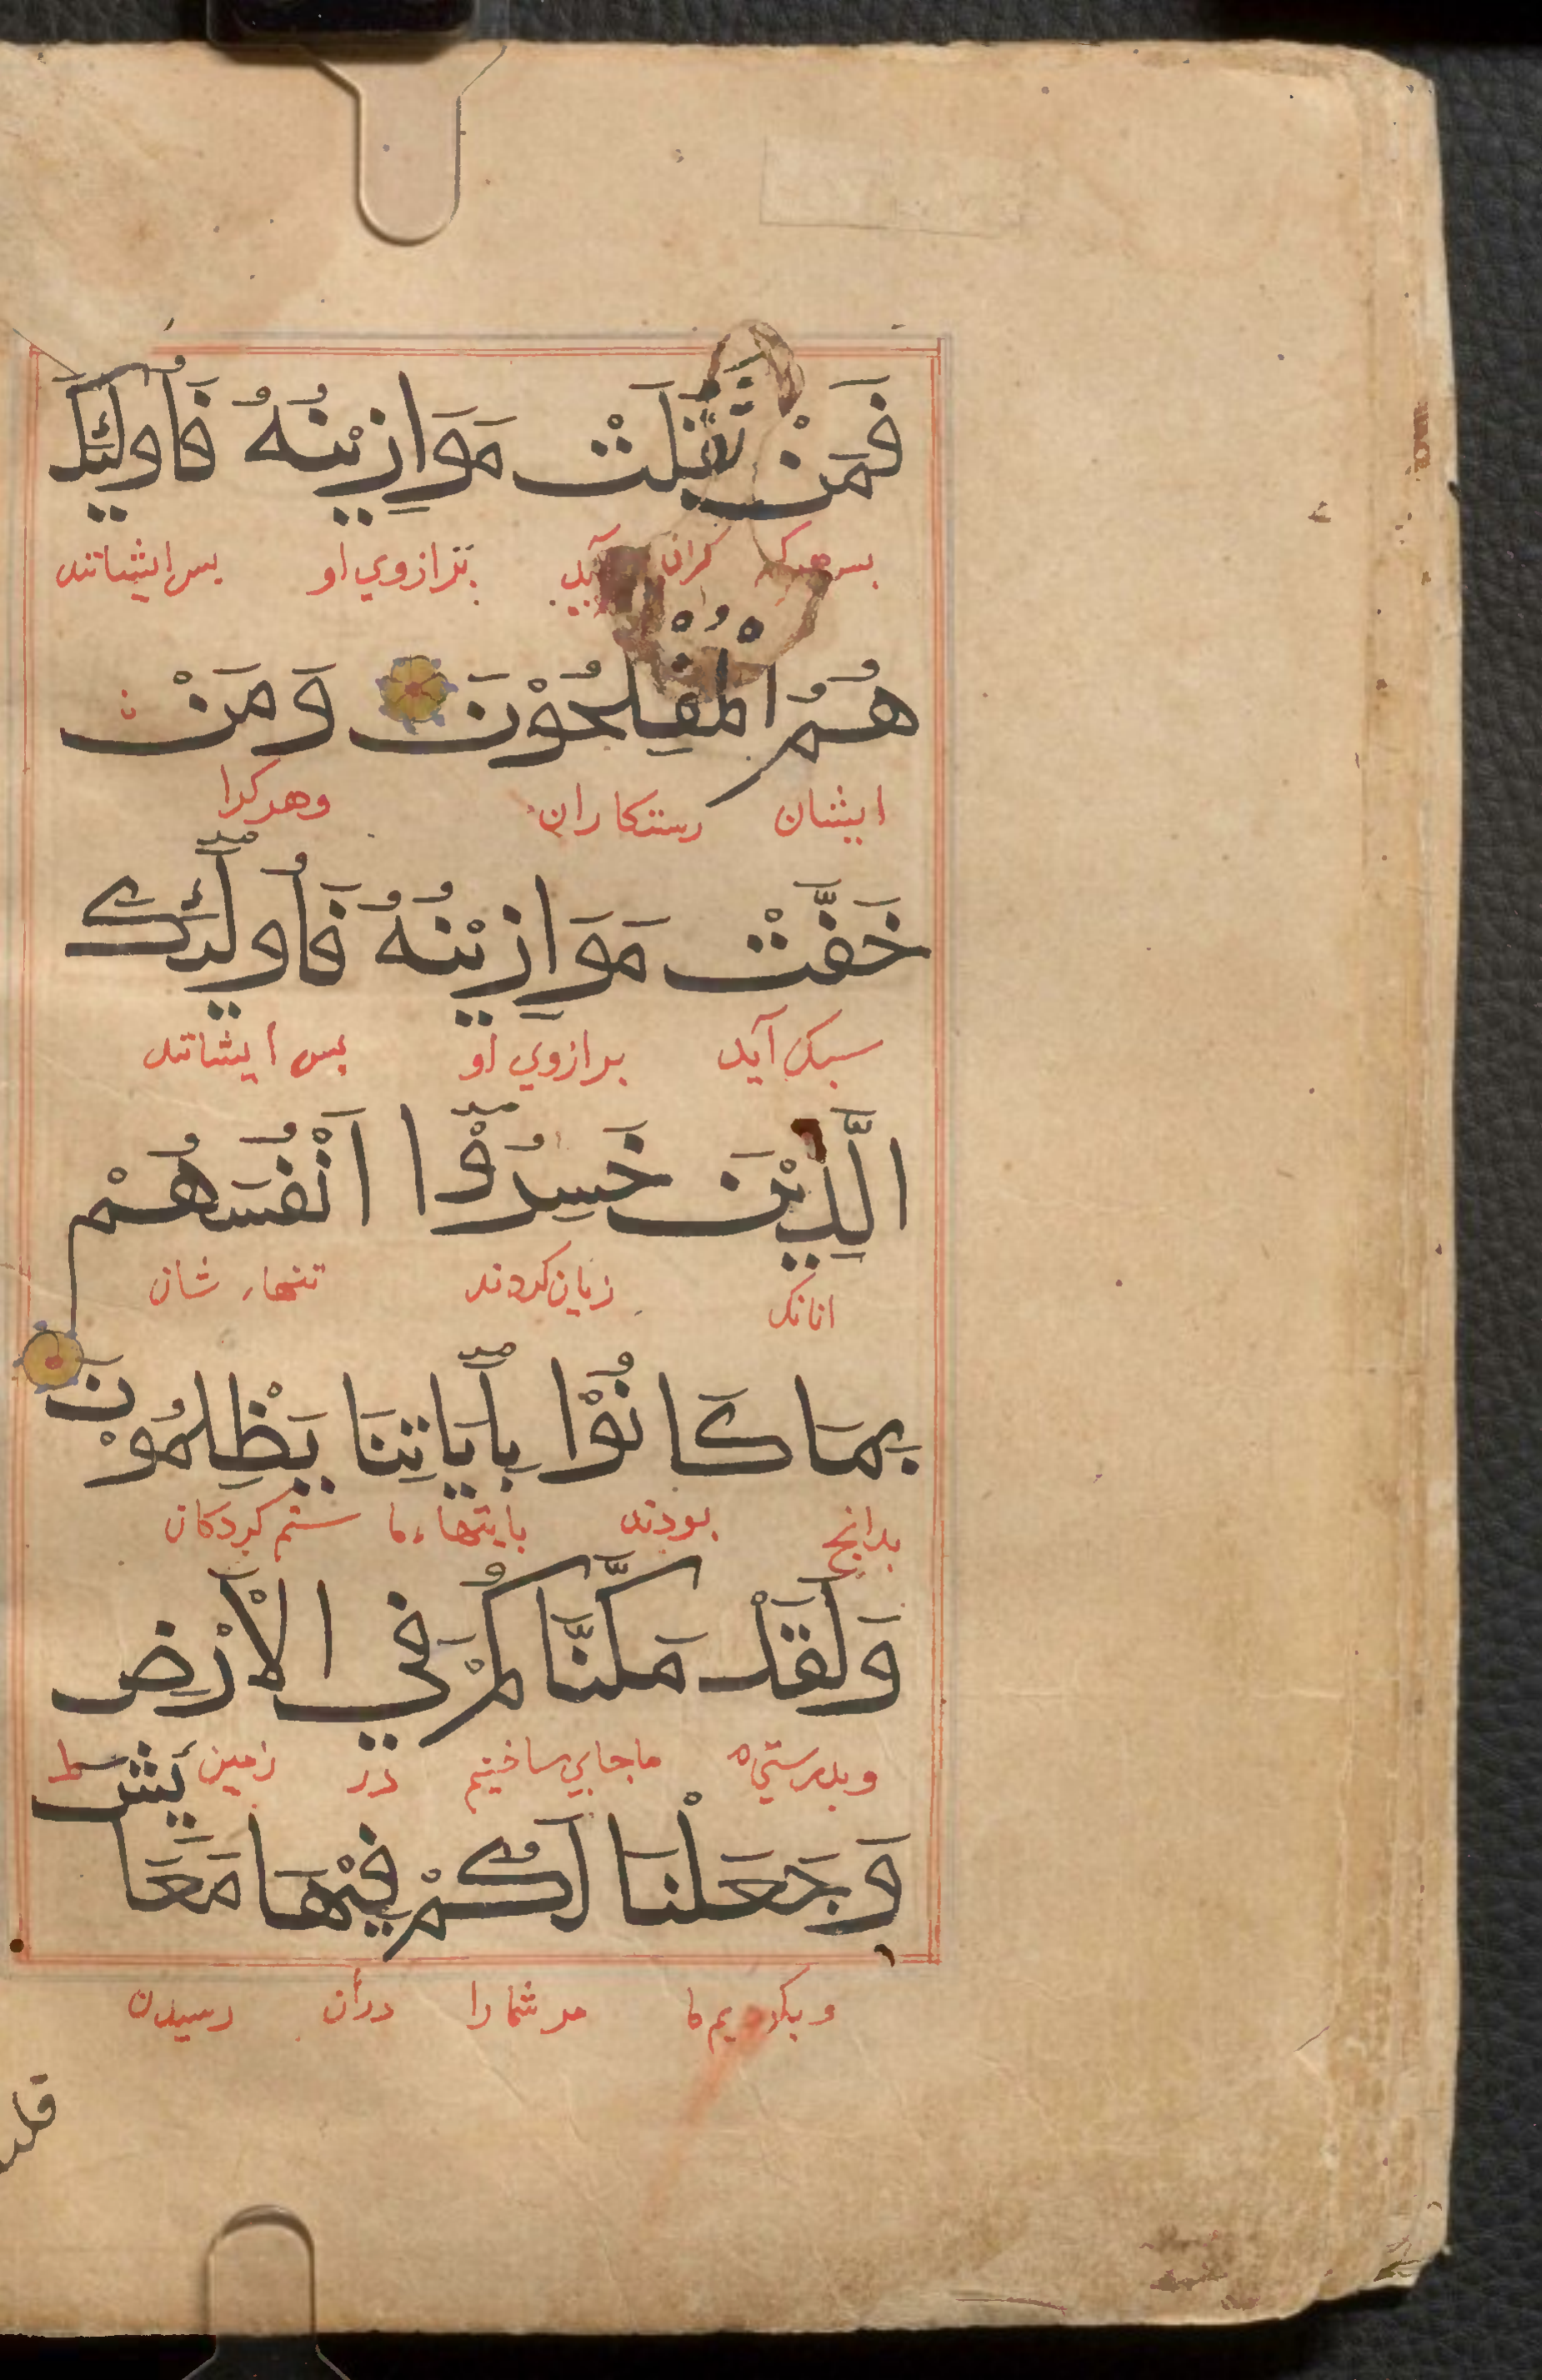 فَمَنْ ثَقُلَتْ مَوَازِيْنُهُ فَأُولَئِكَ
بس هرك كران آيد بترازوي او بس ايشانند
هُمُ الْمُفْلِحُوْنَ وَمَنْ
ايشان رستكاران وهركرا
خَفَّتْ مَوَازِيْنُهُ فَأُولَئِكَ
سبك آيد برازوي او بس ايشانند
الَّذِيْنَ خَسِرُوْا اَنْفُسَهُمْ
انانك زيان كردند تنهاء شان
بِمَا كَانُوْا بِأَيَاتِنَا يَظْلِمُوْنَ
بدانج بودند بايتهاء ما ستم كردكان
وَلَقَدْ مَكَّنَّاكُمْ فِي الْاَرْضِ
وبدرستي ماجايي ساختيم در زمين
وَجَعَلْنَا لَكُمْ فِيْهَا مَعَايِشَ ط
وبكرديم ما مر شما را دران رسيدن